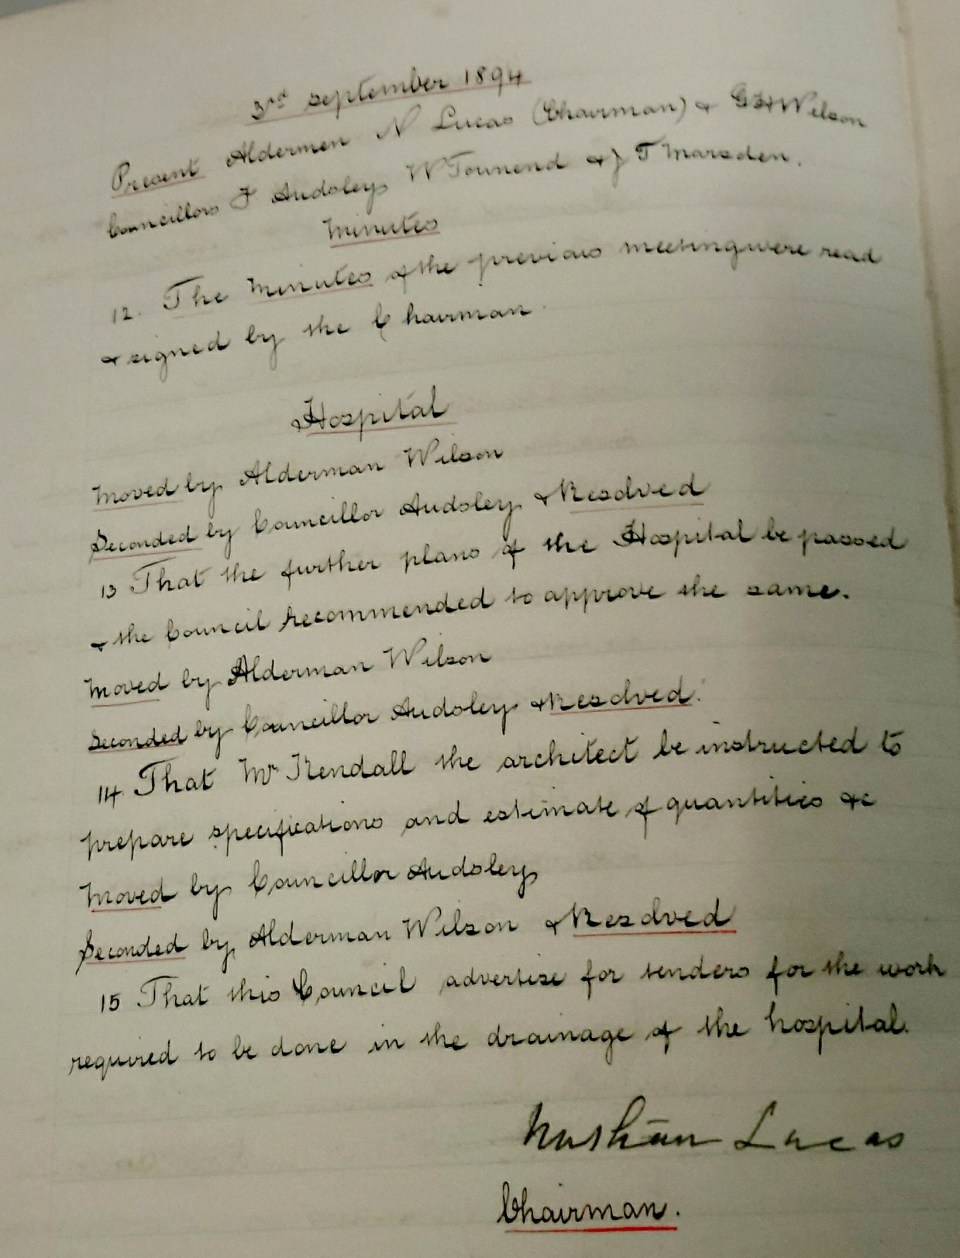 3rd September 1894
Present Aldermen N Lucas (Chairman) & G H Wilson
Councillors F Audsley W Townend & J T Marsden.
Minutes
12. The Minutes of the previous meeting were read
& signed by the Chairman.
Hospital
Moved by Alderman Wilson
Seconded by Councillor Audsley & Resolved
13 That the further plans of the Hospital be passed
& the Council recommended to approve the same.
Moved by Alderman Wilson
Seconded by Councillor Audsley & Resolved.
14 That Mr Kendall the architect be instructed to
prepare specifications and estimate of quantities &c
Moved by Councillor Audsley
Seconded by Alderman Wilson & Resolved
15 That this Council advertise for tenders for the work
required to be done in the drainage of the hospital.
Lucas
Chairman.